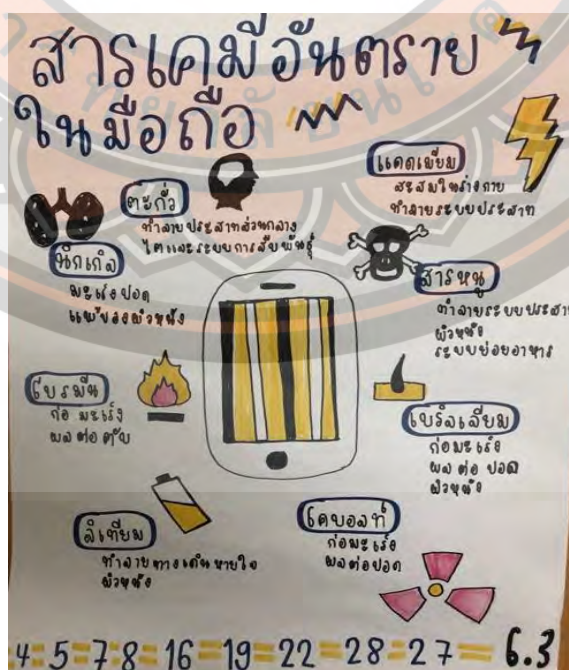 สารเคมีอันตราย
ในมือถือ
ตะกั่ว
ทำลายประสาทส่วนกลาง
ไตและระบบการสืบพันธุ์
แคดเมียม
สะสมในร่างกาย
ทำลายระบบประสาท
นิกเกิล
มะเร็งปอด
สารหนู
ทำลายระบบประสาท
ผิวหนัง
ระบบย่อยอาหาร
โบรมีน
ก่อมะเร็ง
ผลต่อตับ
เบริลเลียม
ก่อมะเร็ง
ผลต่อปอด
ผิวหนัง
ลิเทียม
ทำลายทางเดินหายใจ
ผิวหนัง
โคบอลท์
ก่อมะเร็ง
ผลต่อปอด
4=5=7=8=16=19=22=28=27= 6.3